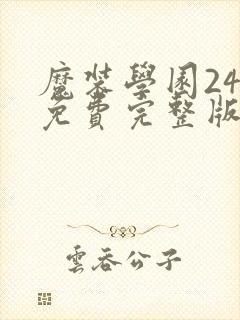 魔裝學園24
免費完整版
雲吞公子